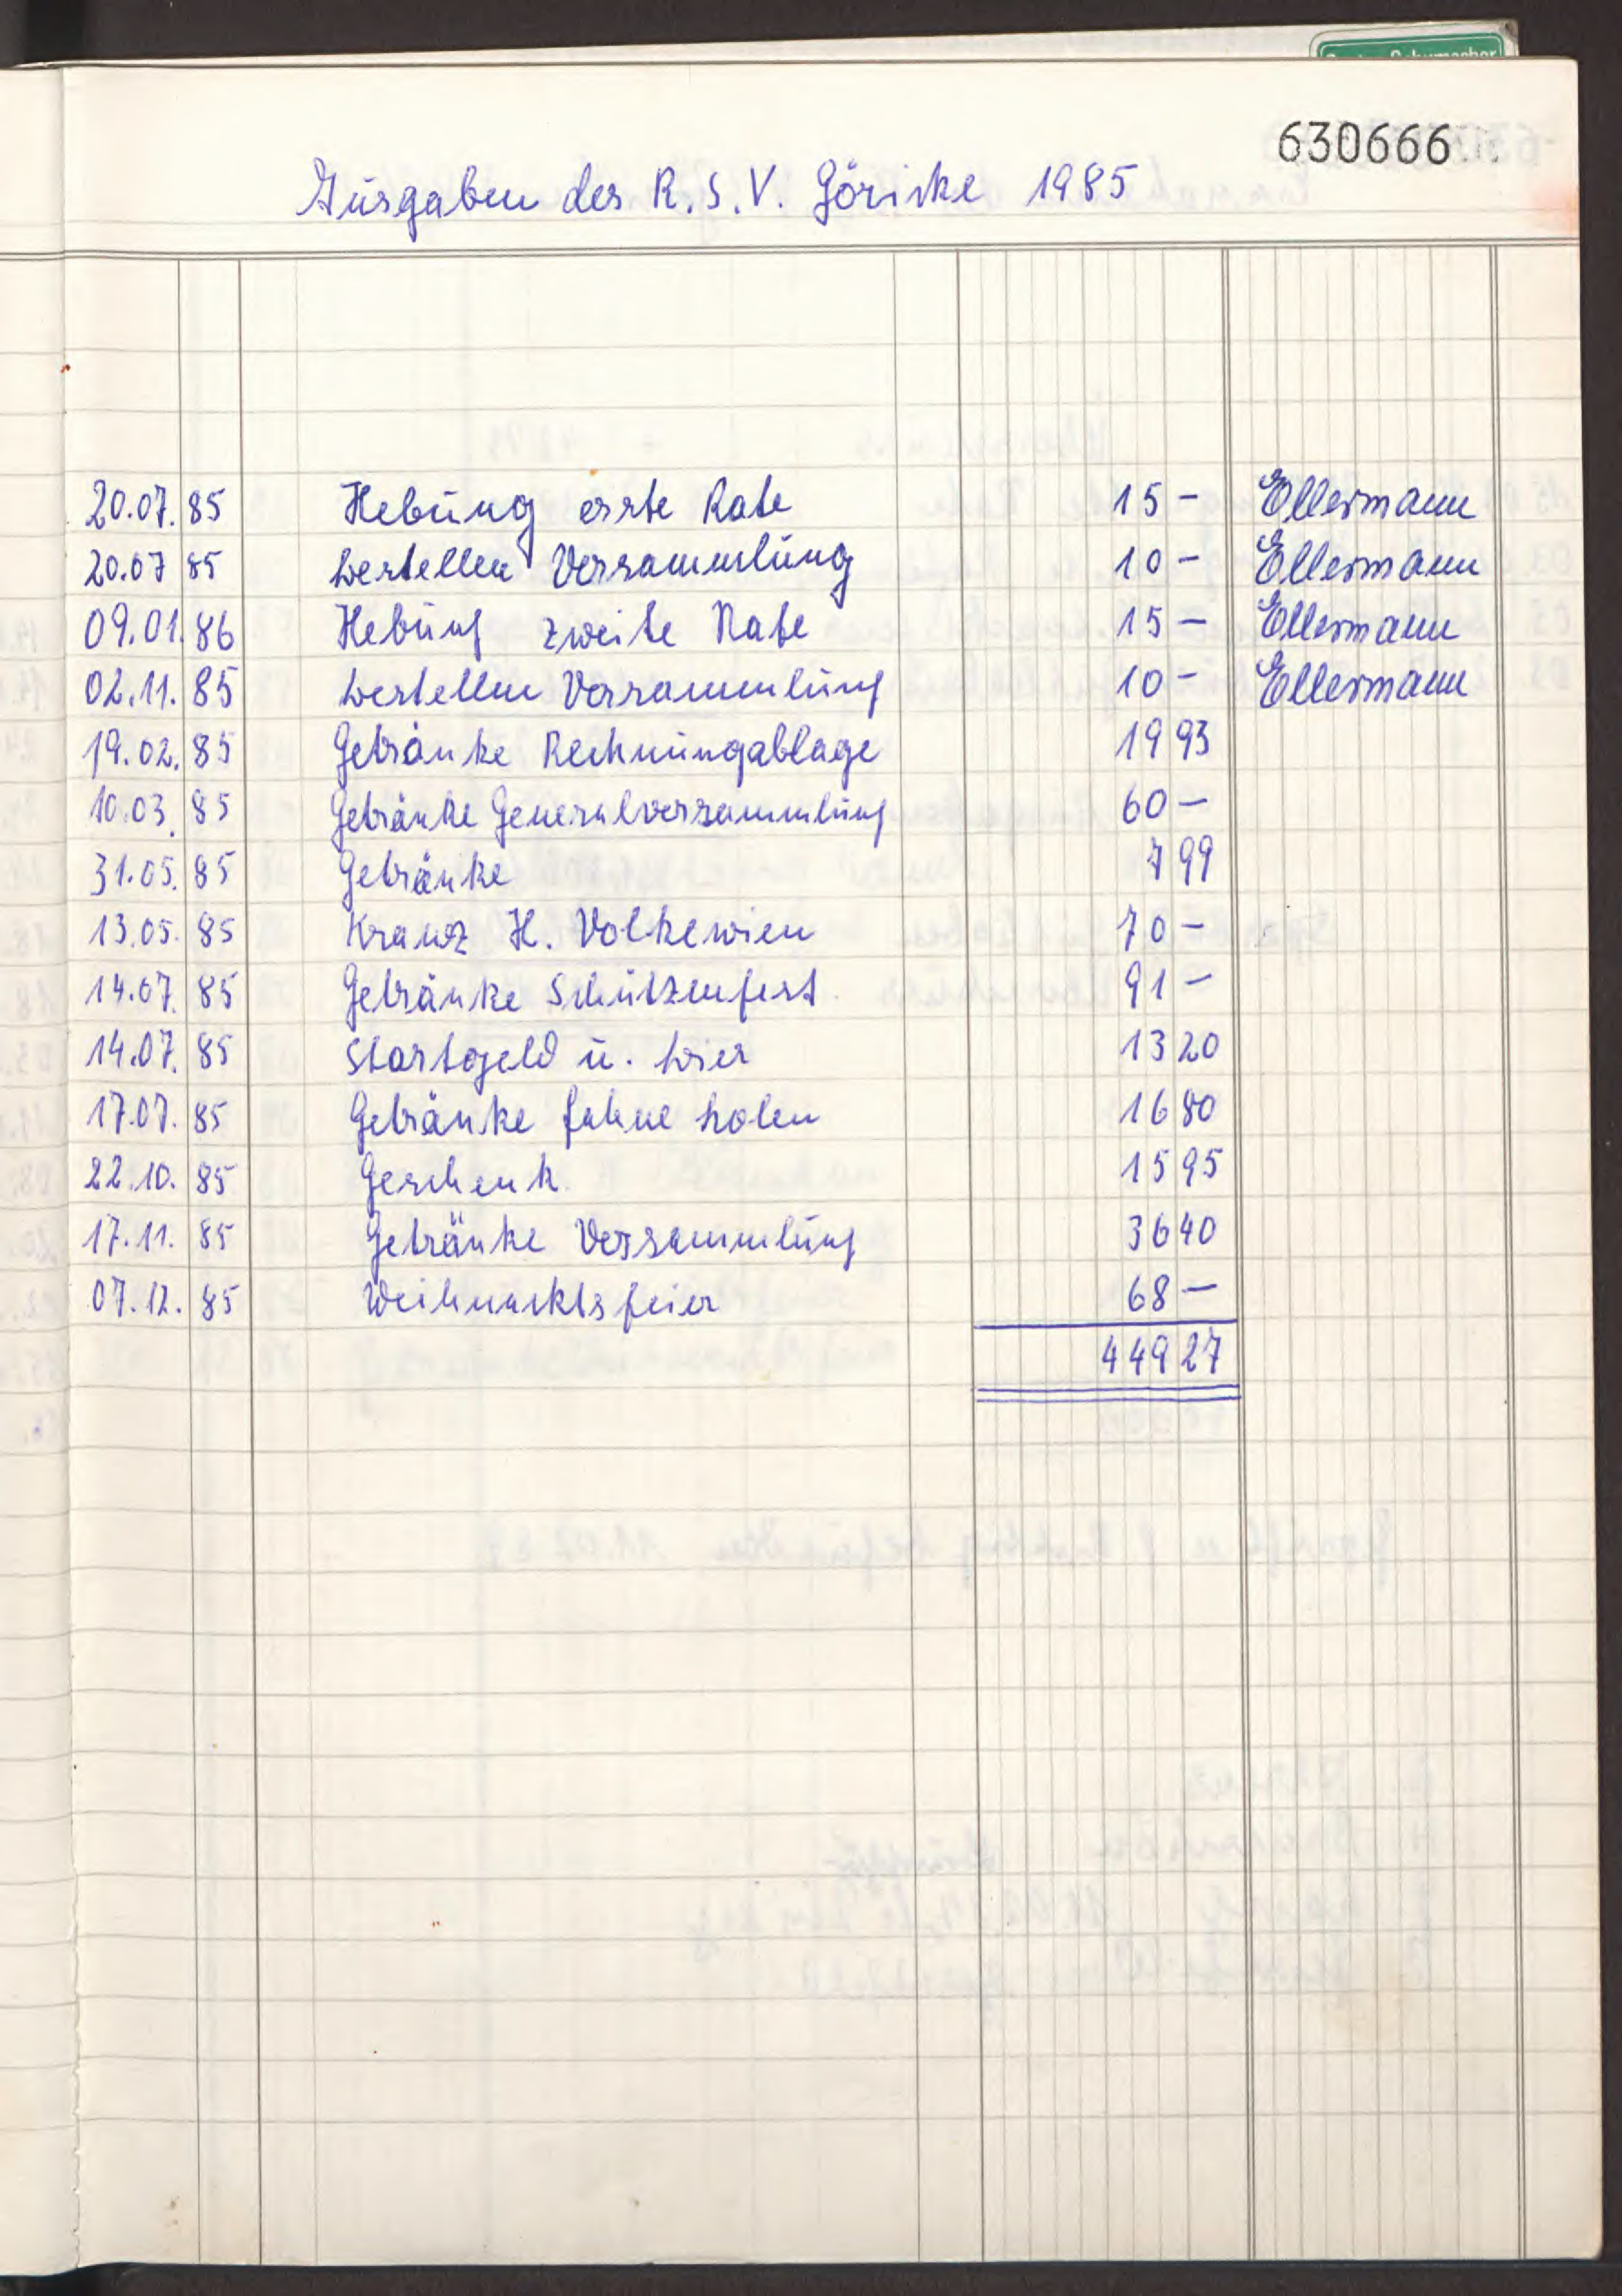 630666
Ausgaben des R.S.V. Göricke 1985
20.07. 85 Hebung erste Rate 15 - Ellermann
20.07 85 bestellen Versammlung 10 - Ellermann
09.01. 86 Hebung zweite Rate 15 - Ellermann
02.11. 85 bestellen Versammlung 10 - Ellermann
19.02. 85 Getränke Rechnungablage 19 93
10.03. 85 Getränke Generalversammlung 60 -
31.05. 85 Getränke 7 99
13.05. 85 Kranz H. Volkewien 70 -
14.07. 85 Getränke Schützenfest 91 -
14.07. 85 Startgeld u. bier 13 20
17.07. 85 Getränke fahne holen 16 80
22.10. 85 Geschenk 15 95
17.11. 85 Getränke Versammlung 36 40
07.12. 85 Weihnachtsfeier 68 -
449 27